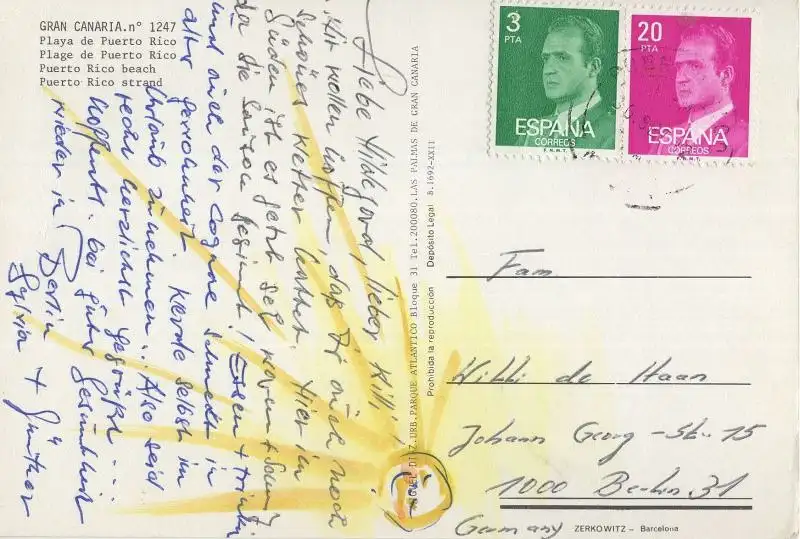 GRAN CANARIA.nº 1247
Playa de Puerto Rico
Plage de Puerto Rico
Puerto Rico beach
Puerto Rico strand
Liebe Hildegard, lieber Willi!
Wir wollen hoffen, daß Ihr auch noch
schönes Wetter hattet. Hier im
Süden ist es jetzt sehr warm +
da die Saison beginnt! Essen + trinken
und auch der Cognac schmeckt in
alter Gewohnheit. Werde selbst im
Urlaub zunehmen.. Also seid
recht herzlichst gegrüßt ....
hoffentl. bei guter Gesundheit
wieder in Berlin
Sylvia + Günther
URB.PARQUE ATLANTICO Bloque 31 Tel.200080.LAS PALMAS DE GRAN CANARIA
Prohibida la reproducción Depósito Legal B.1692-XXII
3
PTA
ESPAÑA
CORREOS
F.N.M.T.
20
PTA
ESPAÑA
CORREOS
F.N.M.T.
Fam
Willi de Haan
Johann Georg-Str. 15
1000 Berlin 31
Germany
ZERKOWITZ - Barcelona